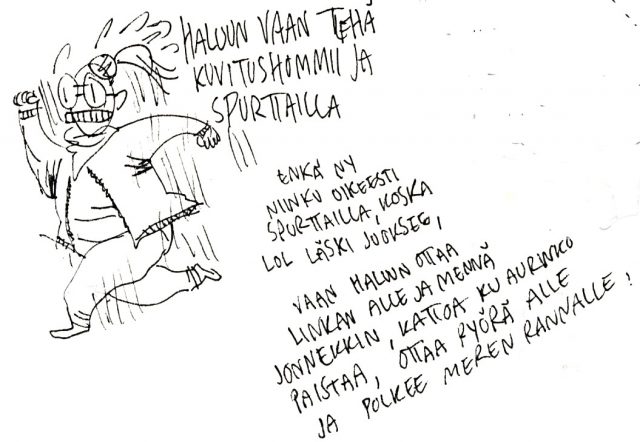 HALUUN VAAN TEHÄ
KUVITUSHOMMII JA
SPURTTAILLA
ENKÄ NY
NIINKU OIKEESTI
SPURTTAILLA, KOSKA
LOL LÄSKI JUOKSEE,
VAAN HALUUN OTTAA
LINKAN ALLE JA MENNÄ
JONNEKKIN, KATTOA KU AURINKO
PAISTAA, OTTAA PYÖRÄ ALLE
JA POLKEE MEREN RANNALLE!